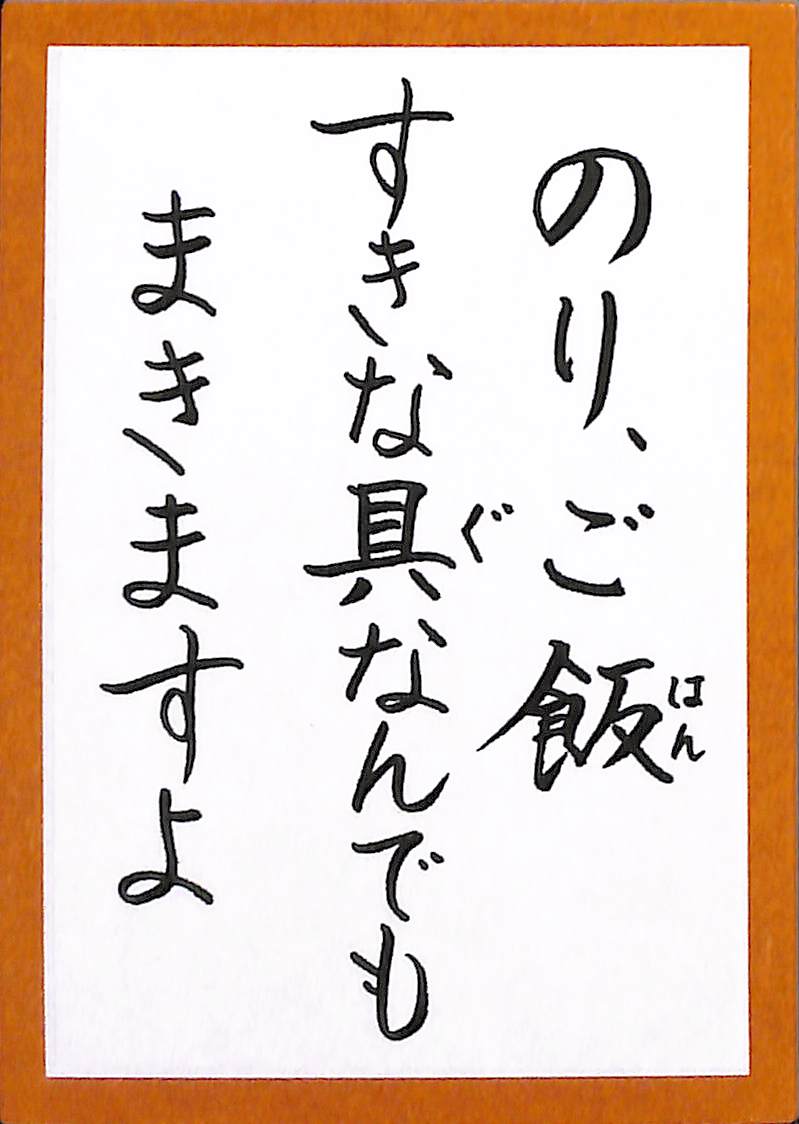 のり、ご飯
はん
すきな具なんでも
ぐ
まきますよ